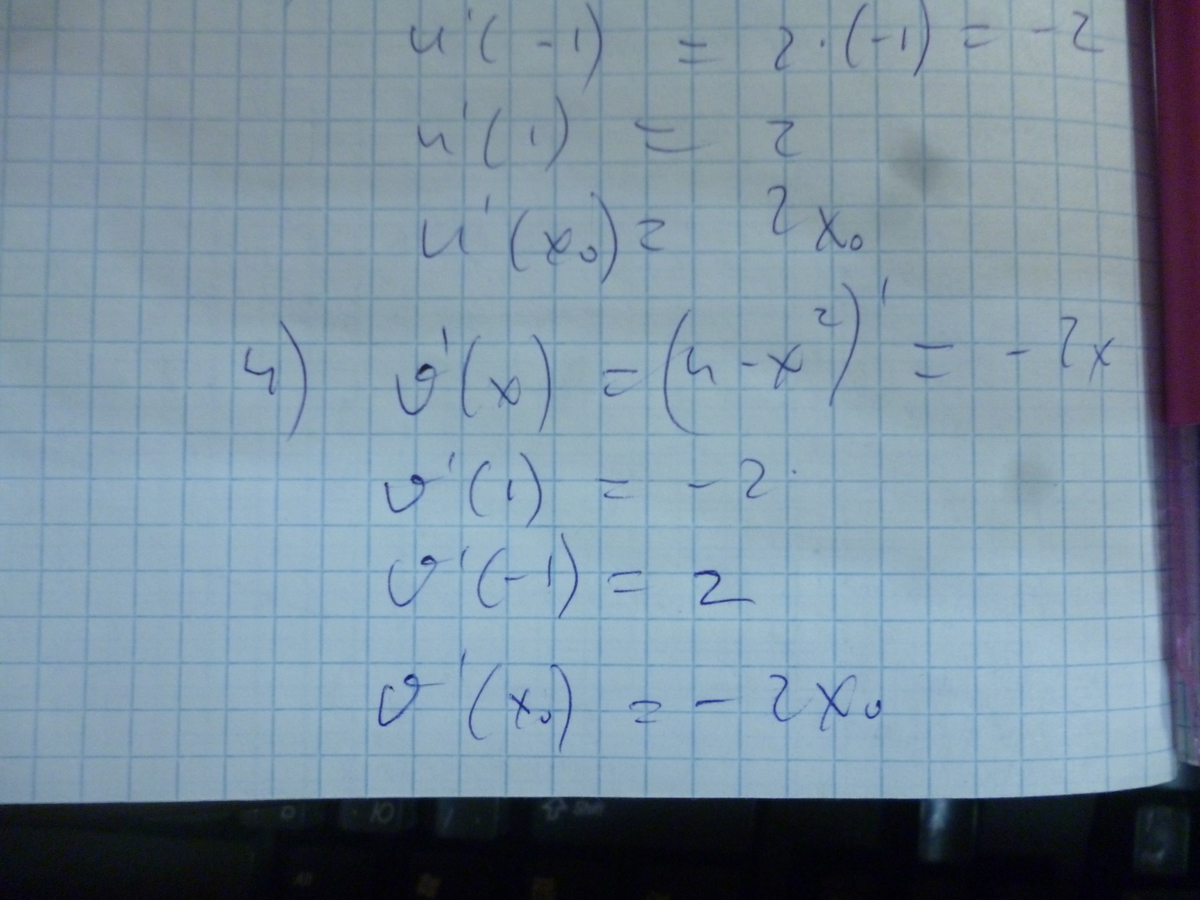 u'(-1) = 2·(-1) = -2
u'(1) = 2
u'(x₀) = 2x₀
4) υ'(x) = (4-x²)' = -2x
υ'(1) = -2
υ'(-1) = 2
υ'(x₀) = -2x₀
10